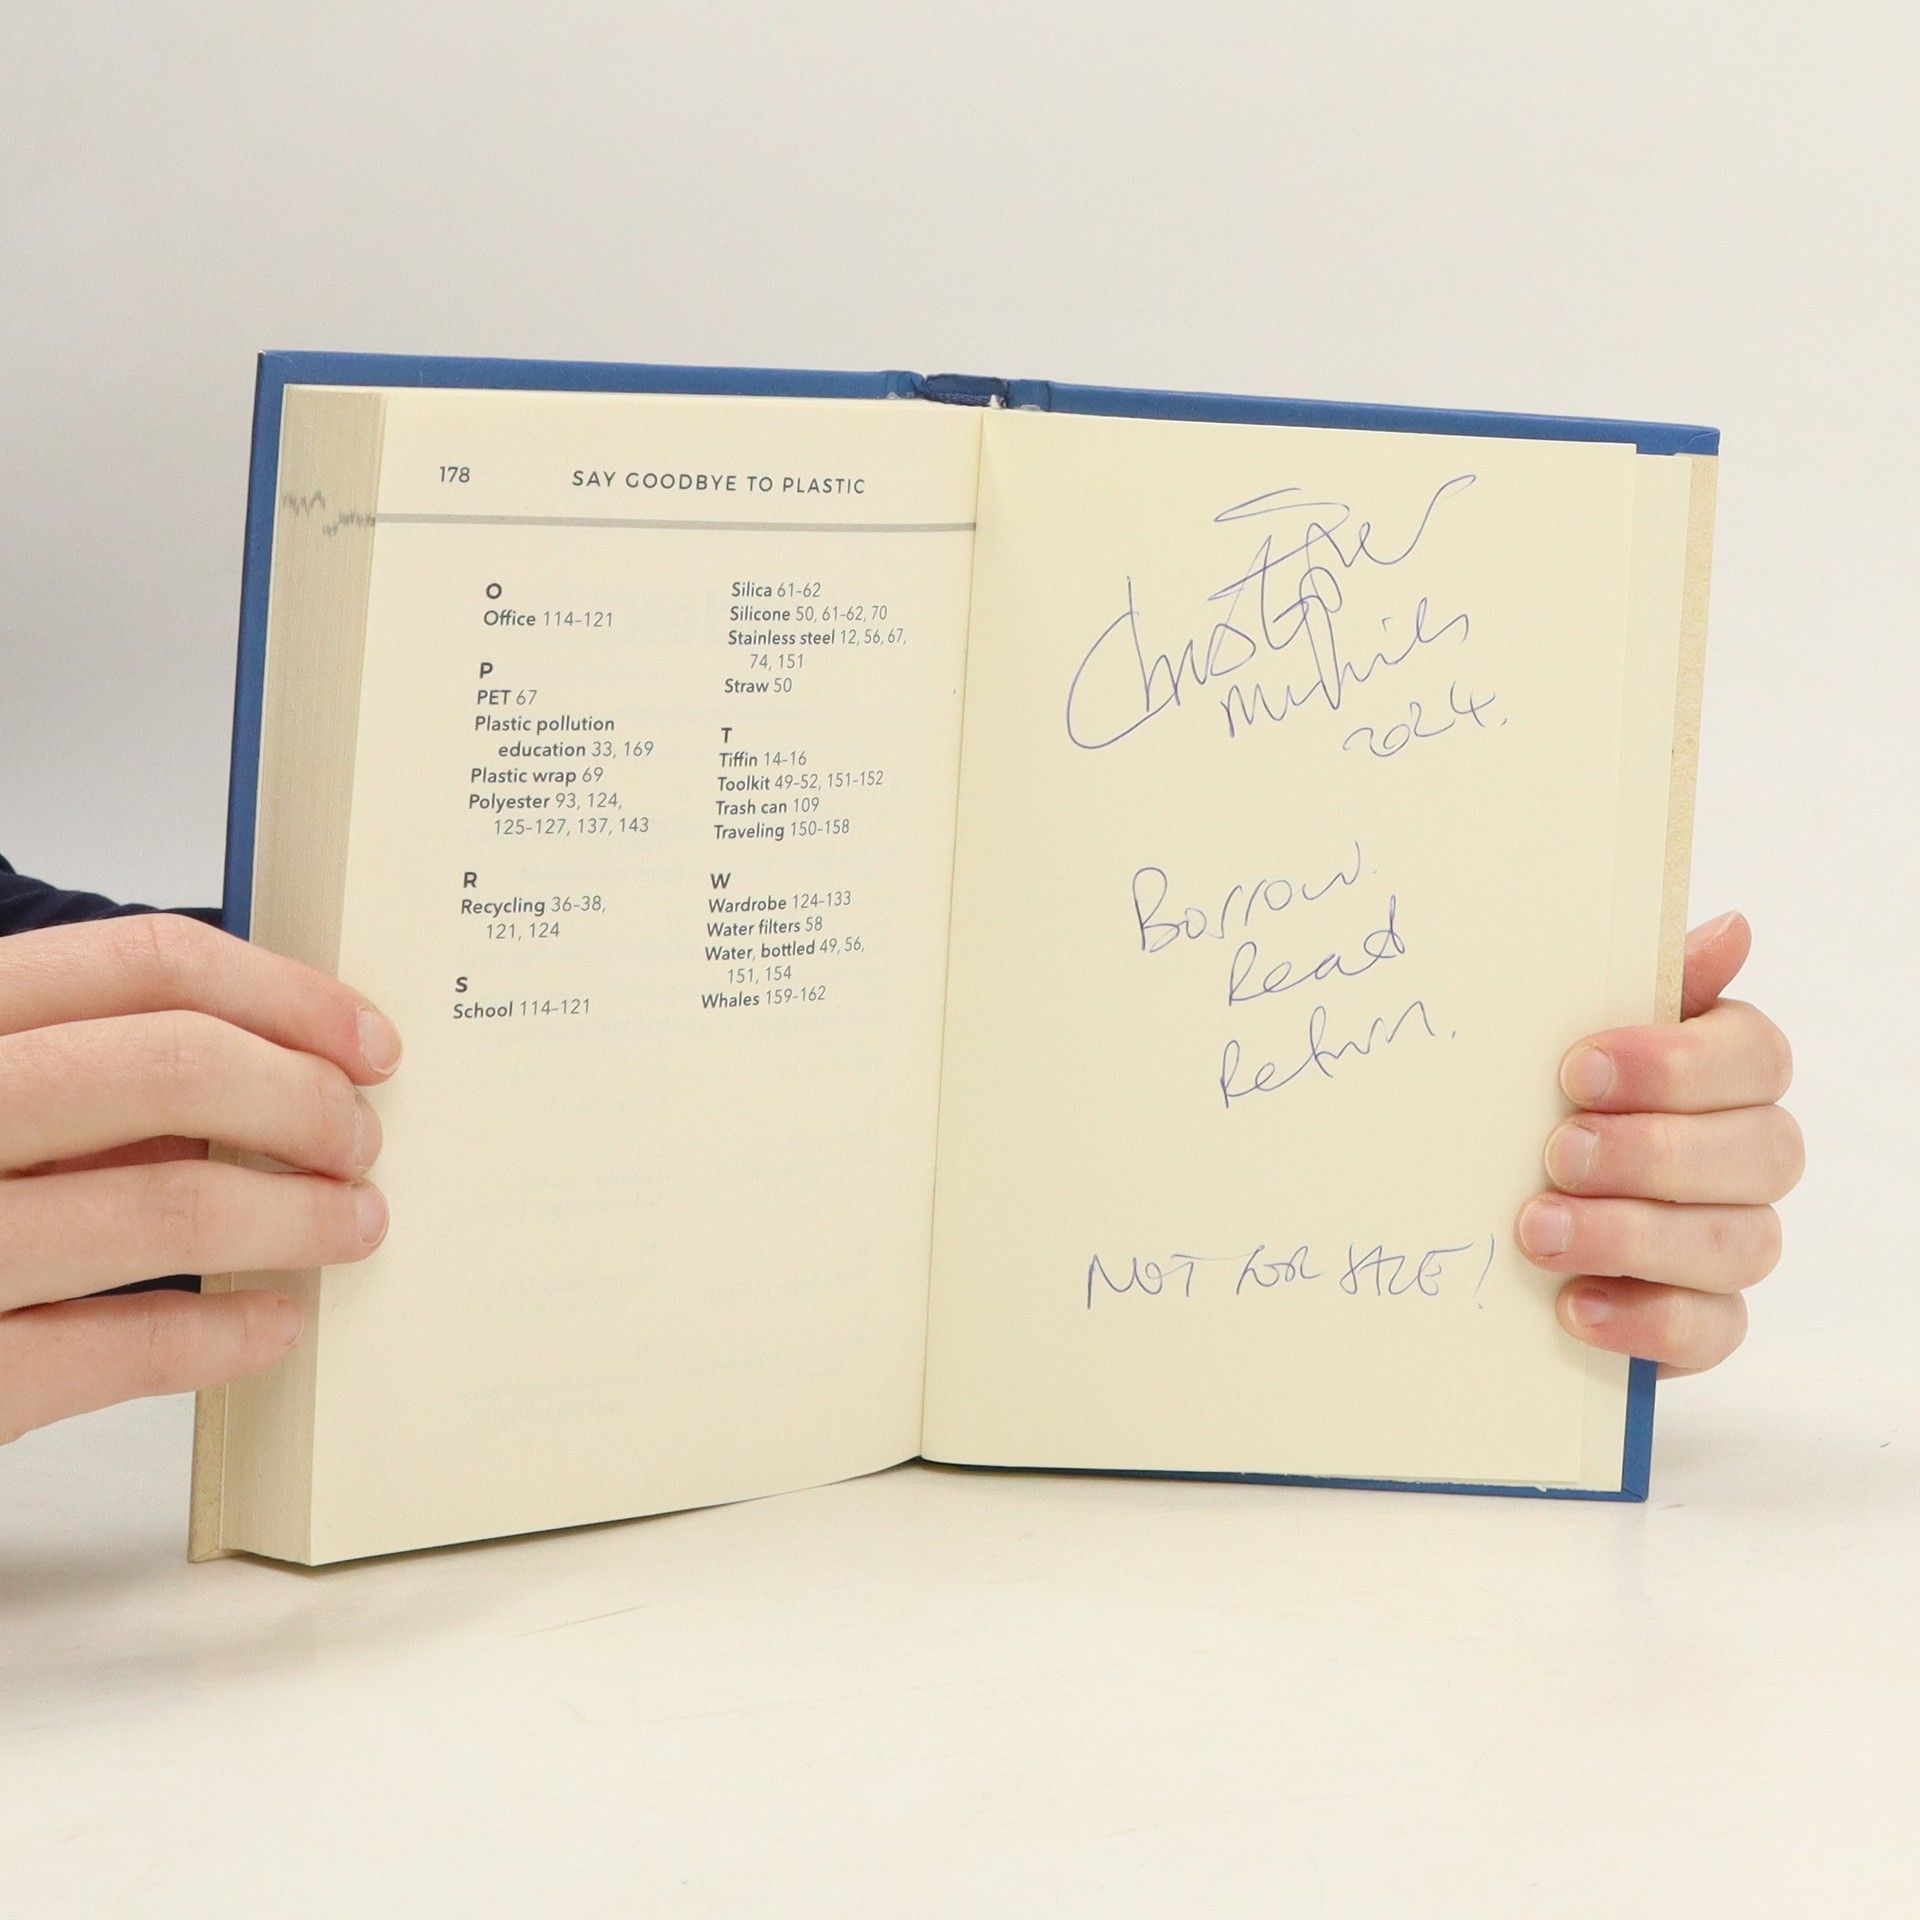 178 SAY GOODBYE TO PLASTIC
O
Office 114–121
P
PET 67
Plastic pollution
education 33, 169
Plastic wrap 69
Polyester 93, 124,
125–127, 137, 143
R
Recycling 36–38,
121, 124
S
School 114–121
Silica 61–62
Silicone 50, 61–62, 70
Stainless steel 12, 56, 67,
74, 151
Straw 50
T
Tiffin 14–16
Toolkit 49–52, 151–152
Trash can 109
Traveling 150–158
W
Wardrobe 124–133
Water filters 58
Water, bottled 49, 56,
151, 154
Whales 159–162
Christopher
2024.
Borrow.
Read
Return.
NOT FOR SALE!